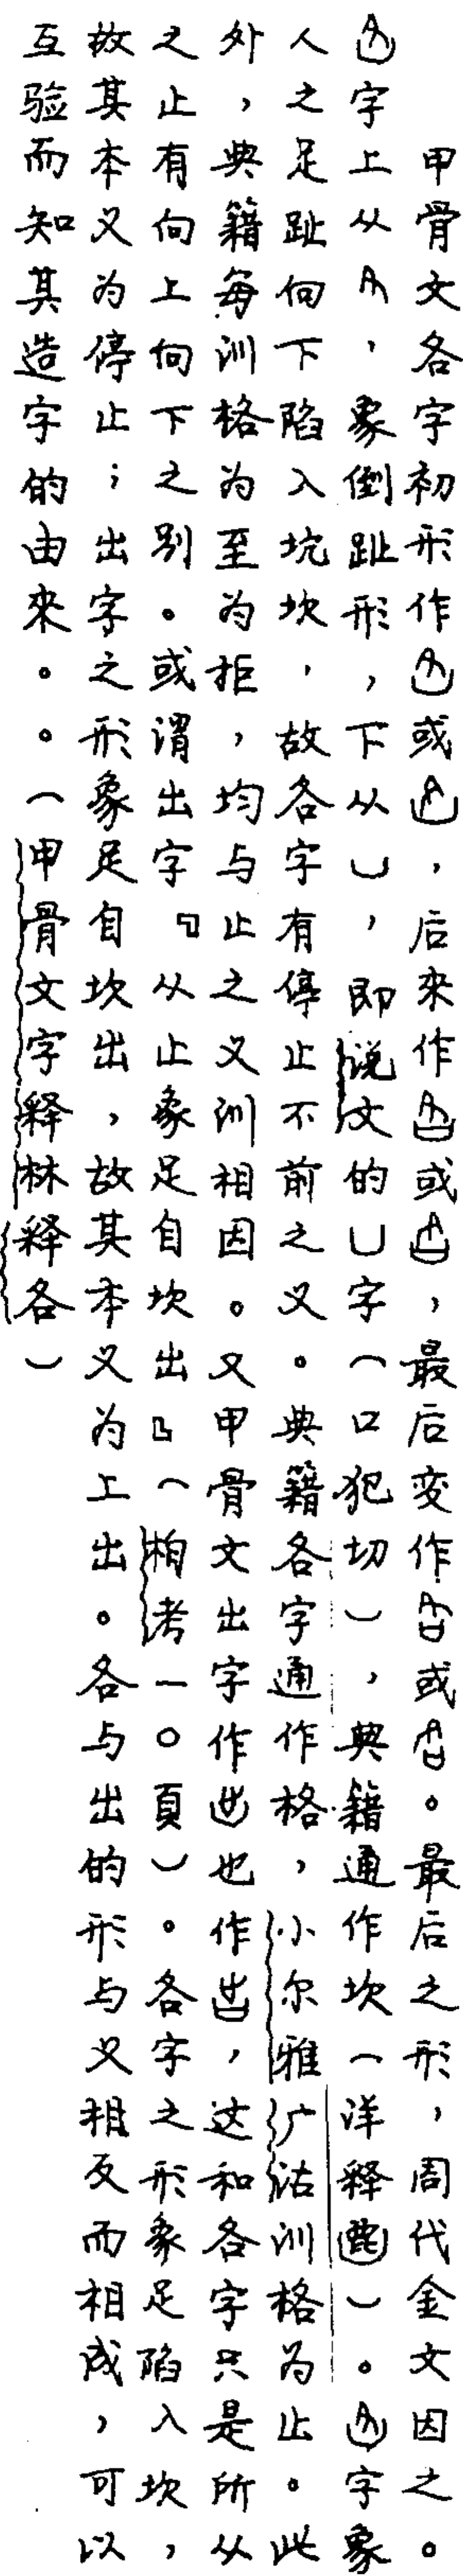 甲骨文各字初形作或，后來作或，最后变作或。最后之形，周代金文因之。
字上从，象倒趾形，下从凵，即说文的凵字（口犯切），典籍通作坎（洋释）。字象
人之足趾向下陷入坑坎，故各字有停止不前之义。典籍各字通作格，小尔雅广诂训格为止。此
外，典籍每训格为至为拒，均与止之义训相因。又甲骨文出字作也作，这和各字只是所从
之止有向上向下之别。或谓出字『从止象足自坎出』（栒考一〇頁）。各字之形象足陷入坎，
故其本义为停止；出字之形象足自坎出，故其本义为上出。各与出的形与义相反而相成，可以
互验而知其造字的由來。。（甲骨文字释林释各）